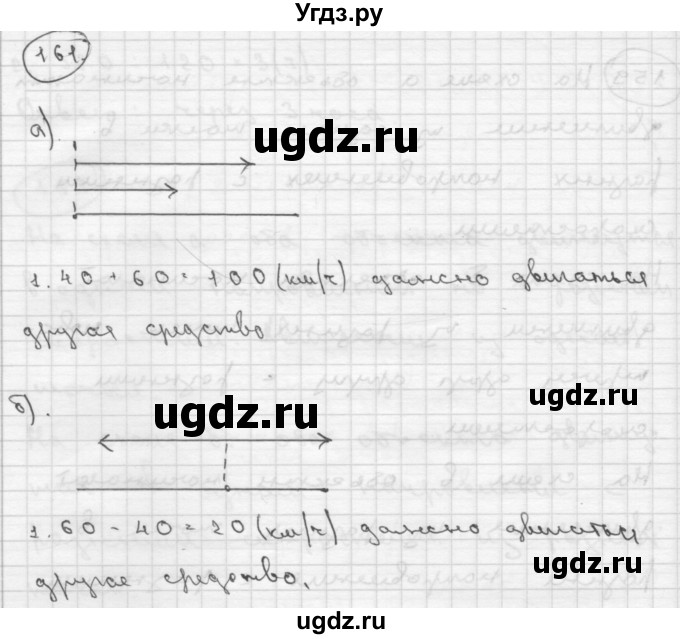 Угдз.ру
161.
а)
ugdz.ru
ugdz.ru
1. 40 + 60 = 100 (км/ч) должно двигаться
другое средство
б).
ugdz.ru
ugdz.ru
1. 60 - 40 = 20 (км/ч) должно двигаться
другое средство.
ugdz.ru